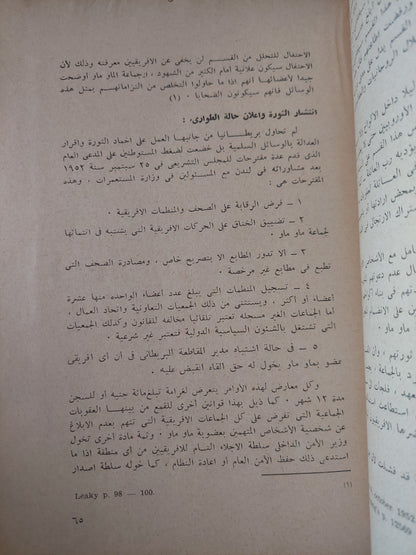 الاحتفال للتحلل من القسم لن يخفى عن الافريقيين معرفته وذلك لأن
الاحتفال سيكون علانية أمام الكثير من الشهود ، وجماعة الماو ماو أوضحت
جيدا لأعضائها أنهم اذا ما حاولوا التخلص من التزاماتهم بمثل هذه
الوسائل فانهم سيكونون الضحايا . (١)
انتشار الثورة واعلان حالة الطوارىء :
لم تحاول بريطانيا من جانبها العمل على اخماد الثورة واقرار
العدالة بالوسائل السلمية بل خضعت لضغط المستوطنين على المدعى العام
الذى قدم عدة مقترحات للمجلس التشريعى فى ٢٥ سبتمبر سنة ١٩٥٢
بعد مشاوراته فى لندن مع المسئولين فى وزارة المستعمرات . وهذه
المقترحات هى :
١ — فرض الرقابة على الصحف والمنظمات الافريقية .
٢ — تضييق الخناق على الحركات الافريقية التى يشتبه فى انتمائها
لجماعة ماو ماو .
٣ — الا تدور المطابع الا بتصريح خاص ، ومصادرة الصحف التى
تطبع فى مطابع غير مرخصة .
٤ — تسجيل المنظمات التى يبلغ عدد أعضاء الواحده منها عشرة
أعضاء أو أكثر . ويستثنى من ذلك الجمعيات التعاونية واتحاد العمال .
اما الجماعات الغير مسجله تعتبر تلقائيا مخالفه للقانون وكذلك الجمعيات
التى تشتغل بالشئون السياسية الدولية فتعتبر غير شرعية .
٥ — فى حالة اشتباه مدير المقاطعة البريطانى فى أن أى افريقى
عضو بماو ماو يخول له حق القاء القبض عليه .
وكل معارض لهذه الاوامر يتعرض لغرامة تبلغ مائة جنيه أو للسجن
مدة ١٢ شهر . كما ذيل بهذا قوانين أخرى للقمع من بينها العقوبات
الجماعية التى تفرض على كل الجماعات الافريقية التى تتهم بعدم الابلاغ
عن شخصية الأشخاص المتهمين بعضوية ماو ماو . وثمة مادة أخرى تخول
وزير الأمن الداخلى سلطة الاجلاء التام للافريقيين من أى منطقة اذا ما
استدعى ذلك حفظ الأمن العام أو اعادة النظام ، كما خوله سلطة اصدار
(١) Leaky p. 98 — 100.
٦٥